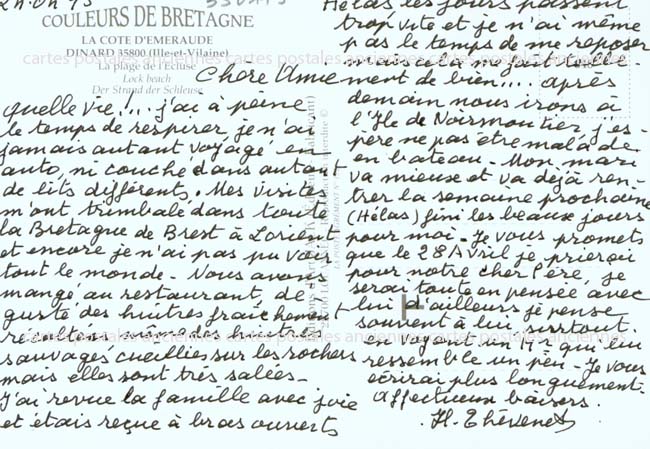 COULEURS DE BRETAGNE
LA COTE D'EMERAUDE
DINARD 35800 (Ille-et-Vilaine)
La plage de l'écluse
Lock beach
Der Strand der Schleuse
Chère Amie
quelle vie !... j'ai à peine
le temps de respirer, je n'ai
jamais autant voyagé en
auto, ni couché dans autant
de lits différents. Mes visites
m'ont trimbalé dans toute
la Bretagne de Brest à Lorient
et encore je n'ai pas pu voir
tout le monde. Nous avons
mangé au restaurant, de
gusté des huîtres fraîchement
récoltées, même des huîtres
sauvages cueillies sur les rochers
mais elles sont très salées.
J'ai revue la famille avec joie
et étais reçue à bras ouverts
Hélas les jours passent
trop vite et je n'ai même
pas le temps de me reposer
mais cela me fait
ment de bien.... après
demain nous irons à
l'Ile de Noirmoutier, j'es-
père ne pas être malade
en bateau. Mon mari
va mieux et va déjà ren-
trer la semaine prochaine
(Hélas) fini les beaux jours
pour moi. Je vous promets
que le 28 Avril je prierai
pour notre cher Père, je
serai toute en pensée avec
lui d'ailleurs je pense
souvent à lui surtout.
en voyant un M. qui lui
ressemble un peu. Je vous
écrirai plus longuement.
Affectueux baisers.
H. Thévenet
cartes postales anciennes cartes postales anciennes cartes postales anciennes
cartes postales anciennes cartes postales anciennes cartes postales anciennes